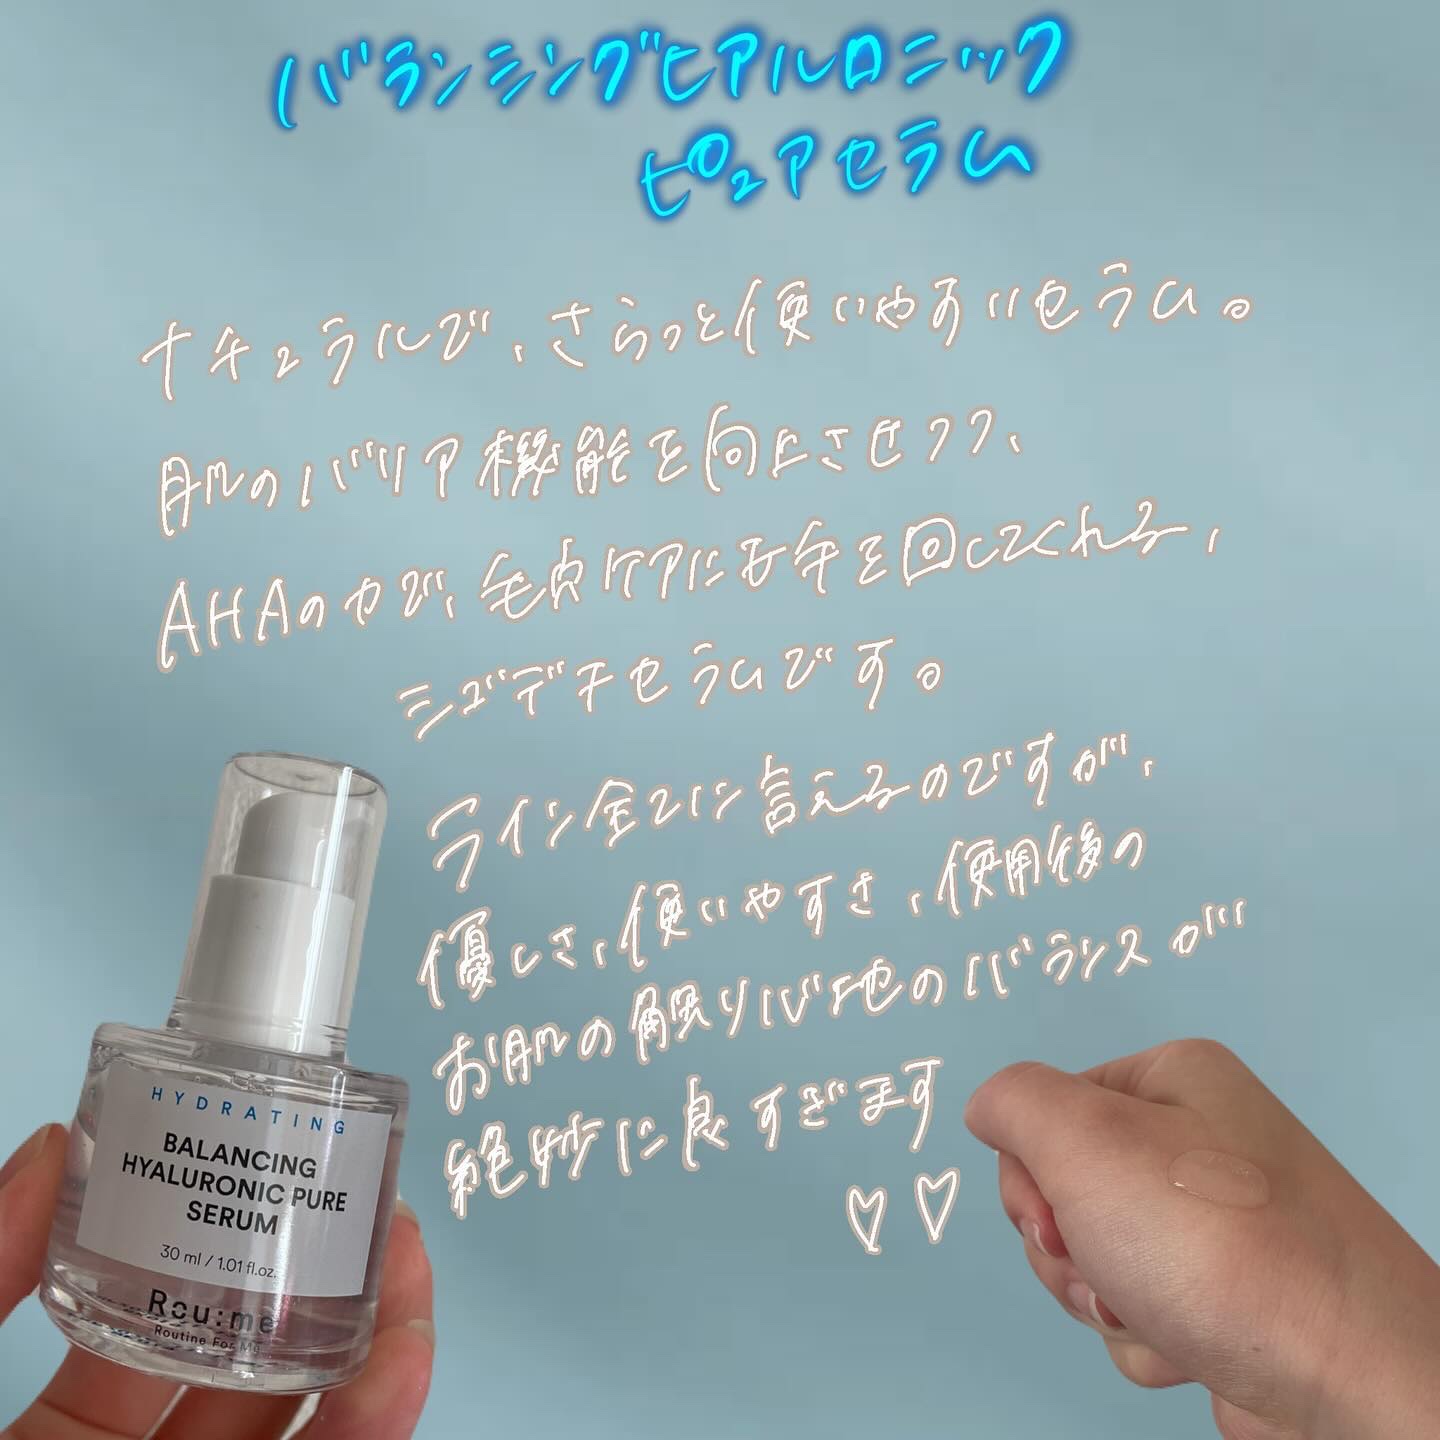 バランシングヒアルロニック
ピュアセラム
ナチュラルで、さらっと使いやすいセラム。
肌のバリア機能を向上させつつ、
AHAの力で、毛点ケアに手を回してくれる、
ミズデチセラムです。
ライン全てに言えるのですが、
優しさ、使いやすさ、使用後の
お肌の触り心地のバランスが
絶妙に良すぎます
♡♡
HYDRATING
BALANCING
HYALURONIC PURE
SERUM
30 ml / 1.01 fl.oz.
Rou:me
Routine For Me